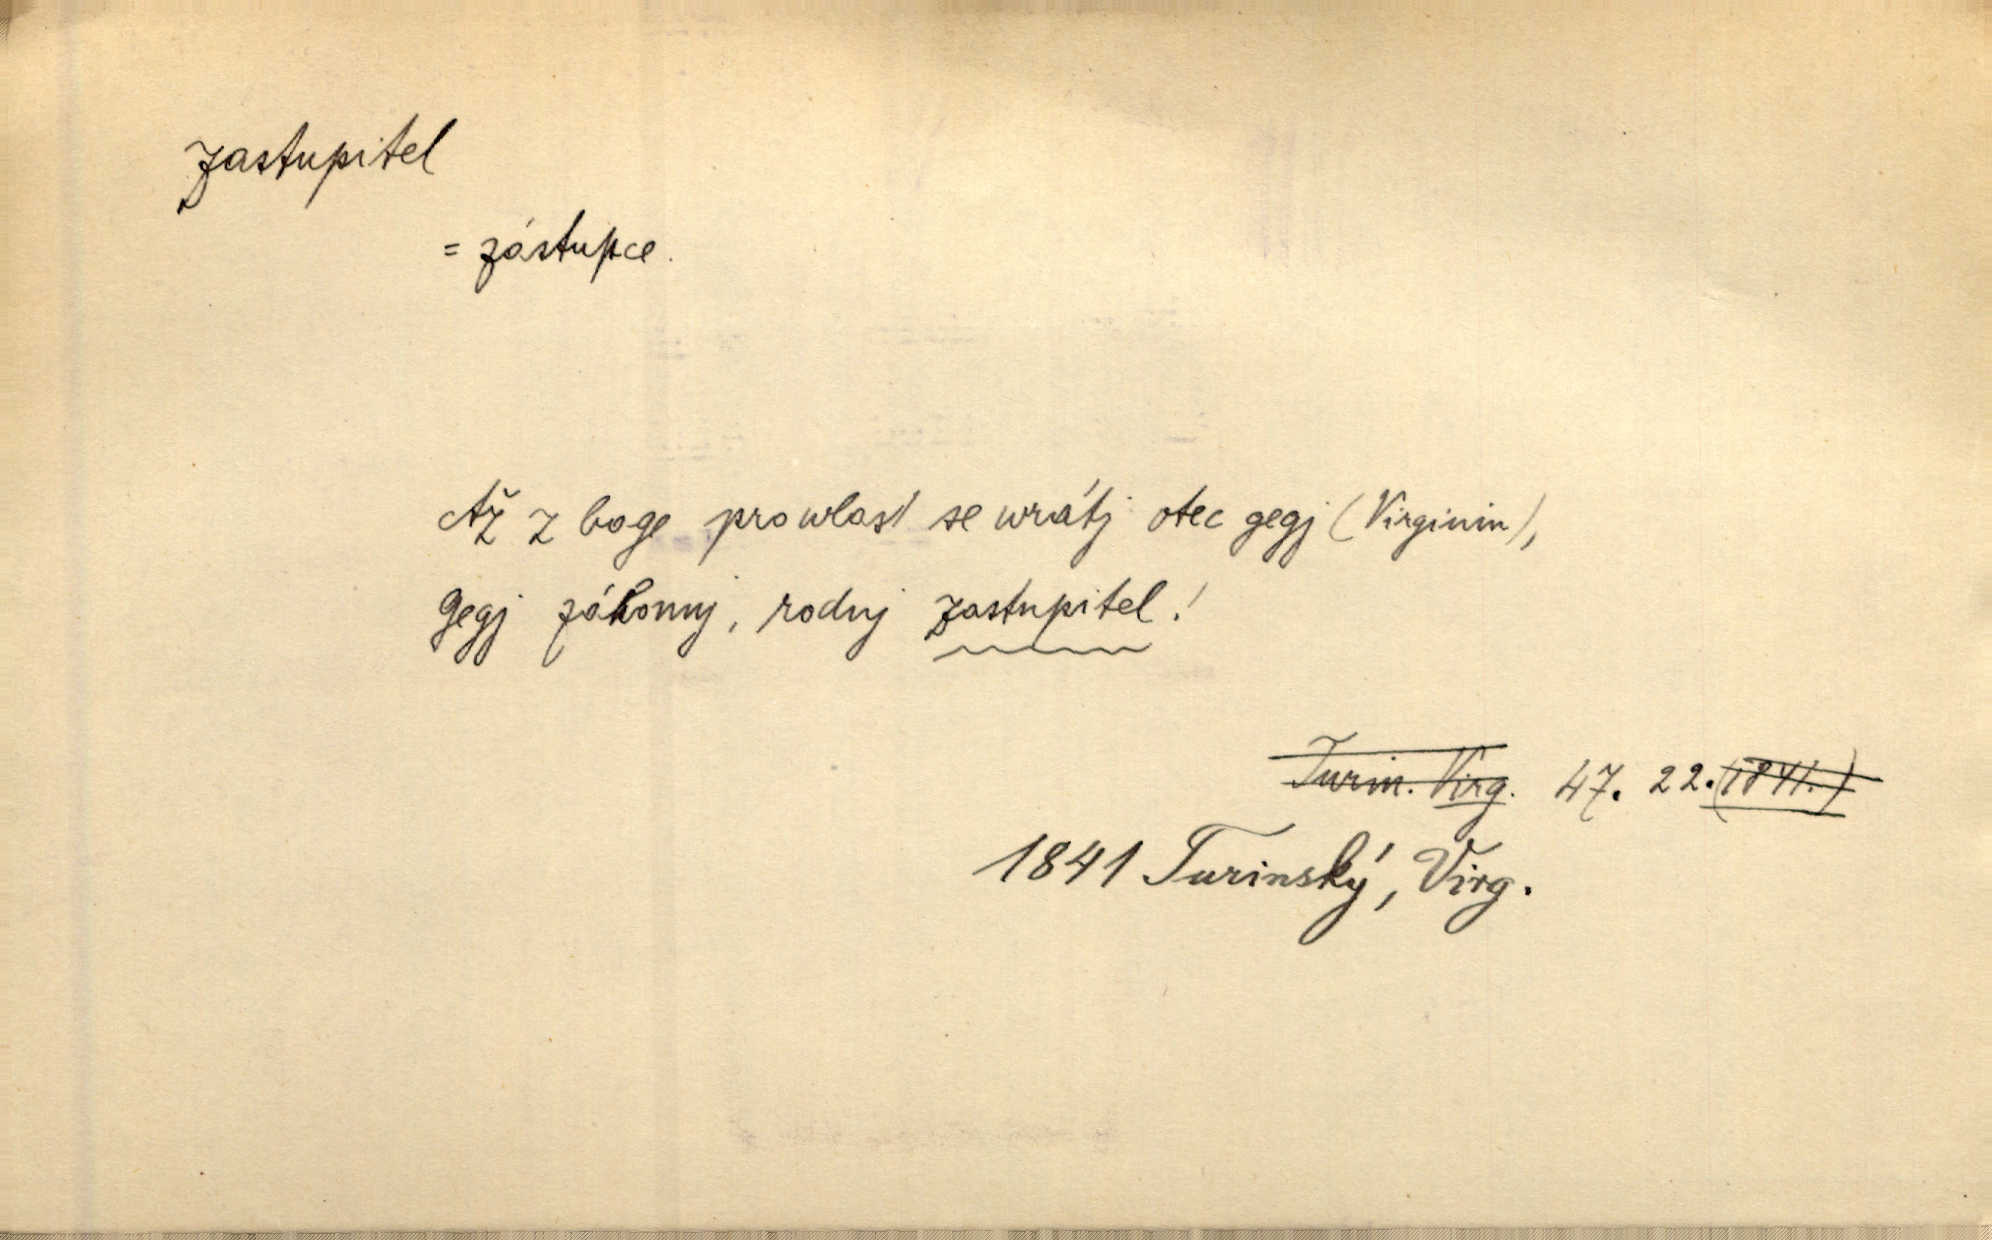 zastupitel
= zástupce.
Až z boge pro wlast se wrátj otec gegj (Virginin),
Gegj zákonnj, rodnj zastupitel!
Turin. Virg. 47. 22. (1841.)
1841 Turinský, Virg.